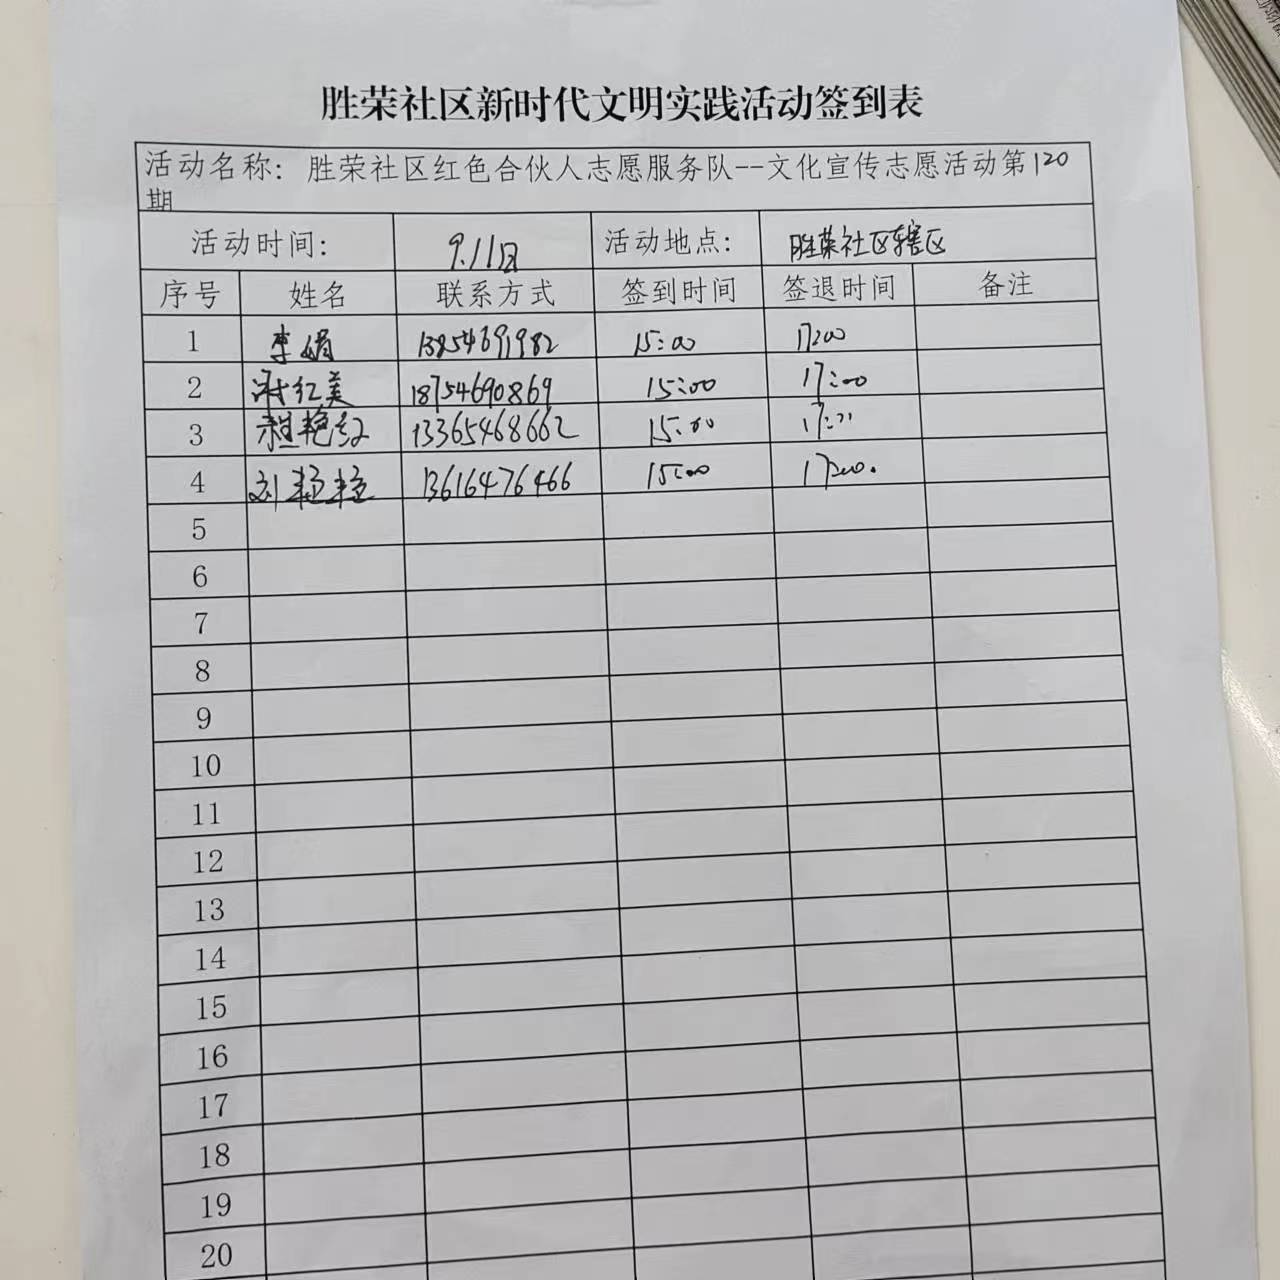 胜荣社区新时代文明实践活动签到表
活动名称: 胜荣社区红色合伙人志愿服务队--文化宣传志愿活动第120
期
活动时间: 9.11日 活动地点: 胜荣社区辖区
序号 姓名 联系方式 签到时间 签退时间 备注
1 李娟 13854691982 15:00 17:00
2 红美 18754690869 15:00 17:00
3 艳红 13365468662 15:00 17:
4 刘 13616476466 15:00 17:00.
5
6
7
8
9
10
11
12
13
14
15
16
17
18
19
20